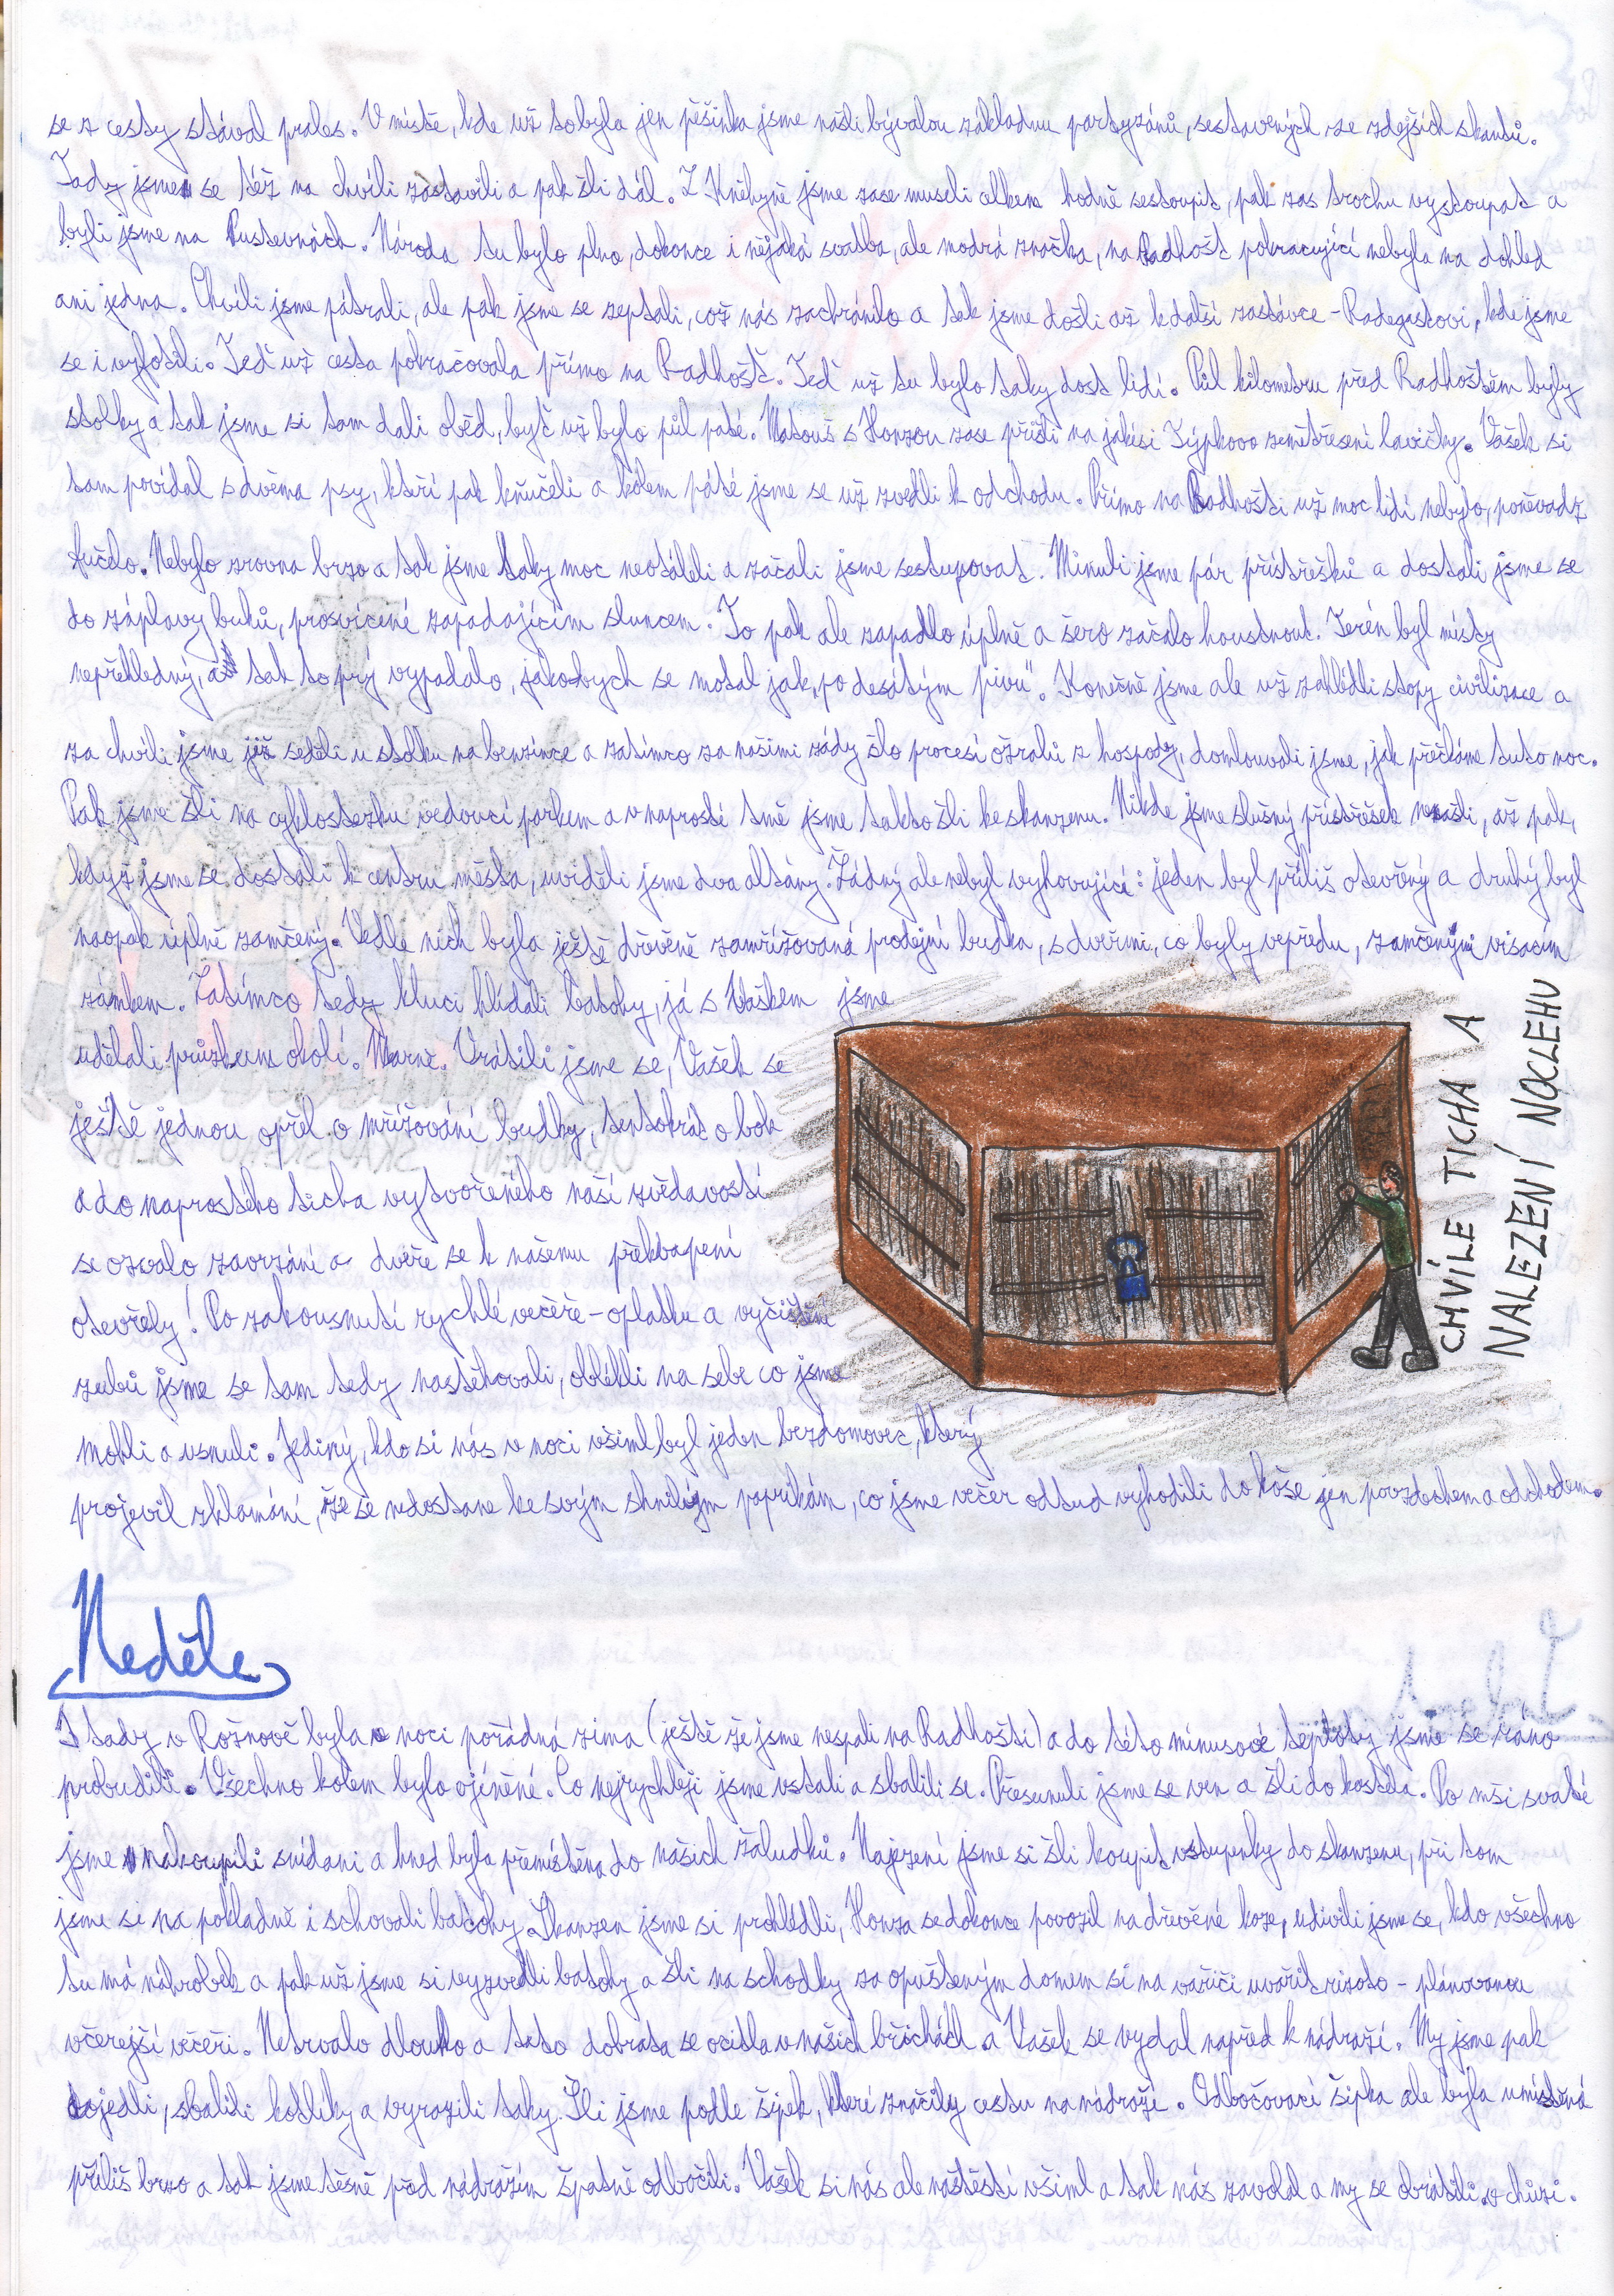 se z cesty stával prales. V místě, kde už to byla jen pěšinka jsme našli bývalou základnu partyzánů, sestavených ze zdejších skautů.
Tady jsme se též na chvíli zastavili a pak šli dál. Z Kněhyně jsme zase museli celkem hodně sestoupit, pak zas trochu vystoupat a
byli jsme na Pustevnách. Národa tu bylo plno, dokonce i nějaká svatba, ale modrá značka, na Radhošť pokračující nebyla na dohled
ani jedna. Chvíli jsme pátrali, ale pak jsme se zeptali, což nás zachránilo a tak jsme došli až k další zastávce - Radegastovi, kde jsme
se i vyfotili. Teď už cesta pokračovala přímo na Radhošť. Teď už tu bylo taky dost lidí. Půl kilometru před Radhoštěm byly
stolky a tak jsme si tam dali oběd, byť už bylo půl páté. Matouš s Honzou zase přišli na jakési Týpkovo zemětřesení lavičky. Vašek si
tam povídal s dvěma psy, kteří pak kňučeli a kolem páté jsme se už zvedli k odchodu. Přímo na Radhošti už moc lidí nebylo, poněvadž
fučelo. Nebylo zrovna brzo a tak jsme taky moc neotáleli a začali jsme sestupovat. Minuli jsme pár přístřešků a dostali jsme se
do záplavy buků, prosvícené zapadajícím sluncem. To pak ale zapadlo úplně a šero začalo houstnout. Terén byl místy
nepřehledný, až tak to prý vypadalo, jakobych se motal jak „po desátým pivu“. Konečně jsme ale už zahlédli stopy civilizace a
za chvíli jsme již seděli u stolku na benzínce a zatímco za našimi zády šlo procesí ožralů z hospody, domlouvali jsme, jak přečkáme tuto noc.
Pak jsme šli na cyklostezku vedoucí parkem a v naprosté tmě jsme takto šli ke skanzenu. Nikde jsme slušný přístřešek nenašli, až pak,
když jsme se dostali k centru města, uviděli jsme dva altány. Žádný ale nebyl vyhovující: jeden byl příliš otevřený a druhý byl
naopak úplně zamčený. Vedle nich byla ještě dřevěně zamřížovaná prodejní budka, s dveřmi, co byly vepředu, zamčenými visacím
zámkem. Zatímco tedy kluci hlídali batohy, já s Vaškem jsme
udělali průzkum okolí. Marně. Vrátili jsme se, Vašek se
ještě jednou opřel o mřížování budky, tentokrát o bok
a do naprostého ticha vytvořeného naší zvědavostí
se ozvalo zavrzání a dveře se k našemu překvapení
otevřely! Po zakousnutí rychlé večeře - oplatku a vyčištění
zubů jsme se tam tedy nastěhovali, oblékli na sebe co jsme
mohli a usnuli. Jediný, kdo si nás v noci všiml byl jeden bezdomovec, který
projevil zklamání, že se nedostane ke svým shnilým paprikám, co jsme večer odtud vyhodili do koše jen povzdechem a odchodem.
CHVÍLE TICHA A
NALEZENÍ NOCLEHU
Neděle
I tady v Rožnově byla v noci pořádná zima (ještě že jsme nespali na Radhošti) a do této mínusové teploty jsme se ráno
probudili. Všechno kolem bylo ojíněné. Co nejrychleji jsme vstali a sbalili se. Přesunuli jsme se ven a šli do kostela. Po mši svaté
jsme nakoupili snídani a hned byla přemístěna do našich žaludků. Najezení jsme si šli koupit vstupenky do skanzenu, při tom
jsme si na pokladně i schovali batohy. Skanzen jsme si prohlédli, Honza se dokonce povozil na dřevěné koze, udivili jsme se, kdo všechno
tu má náhrobek a pak už jsme si vyzvedli batohy a šli na schodky za opuštěným domem si na vařiči uvařit rizoto - plánovanou
včerejší večeři. Netrvalo dlouho a tato dobrota se ocitla v našich břichách a Vašek se vydal napřed k nádraží. My jsme pak
dojedli, sbalili kotlíky a vyrazili taky. Šli jsme podle šipek, které značily cestu na nádraží. Odbočovací šipka ale byla umístěná
příliš brzo a tak jsme těsně před nádražím špatně odbočili. Vašek si nás ale naštěstí všiml a tak nás zavolal a my se obrátili v chůzi.